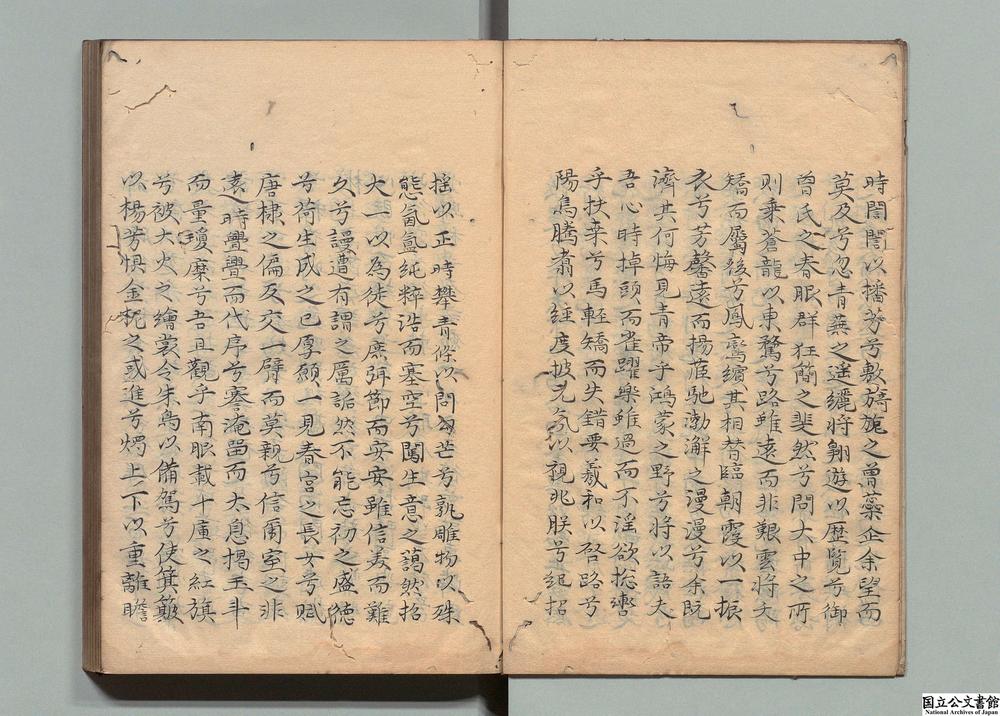 時誾誾以播芳兮敷旖旎之曽蘂企余望而
莫及兮忽青蕪之逺纚将翺遊以歴覧兮御
曽氏之春服群狂簡之斐然兮問大中之所
則乗蒼龍以東騖兮路雖遠而非艱雲将夭
矯而属後兮鳳鸞繽其相替臨朝霞以一振
衣兮芳馨遠而揚菲馳渤澥之漫漫兮余既
濟其何悔見青帝乎鴻蒙之野兮将以語夫
吾心時掉頭而雀躍樂雖過而不淫欲揔轡
乎扶桒兮馬輕矯而失錯要羲和以啓路兮
陽烏騰翥以経度披元氣以視兆朕兮紀招
揺以正時攀青條以問勾芒兮孰雕物以殊
態氤氳純粹浩而塞空兮闖生意之藹然招
大一以為徒兮庶弭節而安安雖信美而難
久兮謾遭有謂之厲詬然不能忘初之盛徳
兮荷生成之已厚願一見春宮之長女兮賦
唐棣之偏反交一臂而莫親兮信爾室之非
遠時亹亹而代序兮蹇淹留而大息揭玉斗
而量瓊糜兮吾且觀乎南服載十庫之紅旗
兮被大火之繪裳令朱鳥以備駕兮使箕簸
以楊芳惧金柅之或進兮燭上下以重離瞻
国立公文書館
National Archives of Japan